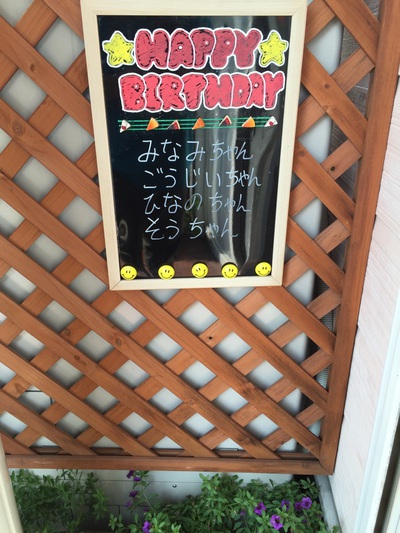 HAPPY
BIRTHDAY
みなみちゃん
ごうじいちゃん
ひなのちゃん
そうちゃん